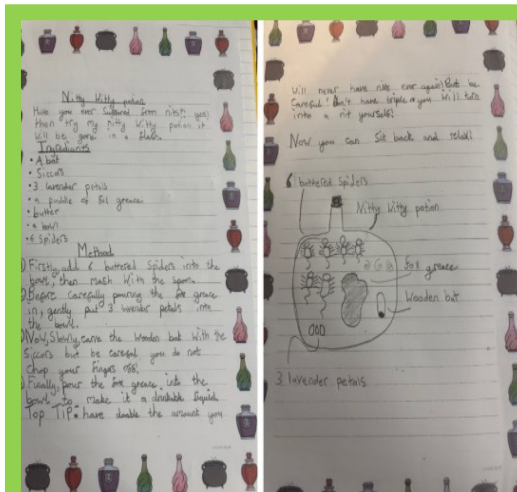 Nitty Witty potion
Have you ever suffered from nits? If you
then try my Nitty Witty potion it
will be gone in a flash.
Ingredients
• A bat
• Siccors
• 3 lavender petals
• a puddle of fox grease
• butter
• a bowl
• 6 Spiders
Method
Firstly, add 6 buttered Spiders into the
bowl, then mash with the
Before carefully pouring the fox grease
in, gently put 3 lavender petals into
the bowl.
Now, Slowly carve the wooden bat with the
Siccors but be careful you do not
chop your fingers off!
Finally, pour the fox grease into the
bowl to make it a drinkable liquid
Top Tip: have double the amount you
will never have nits ever again! But be
careful! Don't have triple or you will turn
into a nit yourself!
Now you can Sit back and relax!
6 buttered Spiders
Nitty Witty potion
fox grease
Wooden bat
3 lavender petals